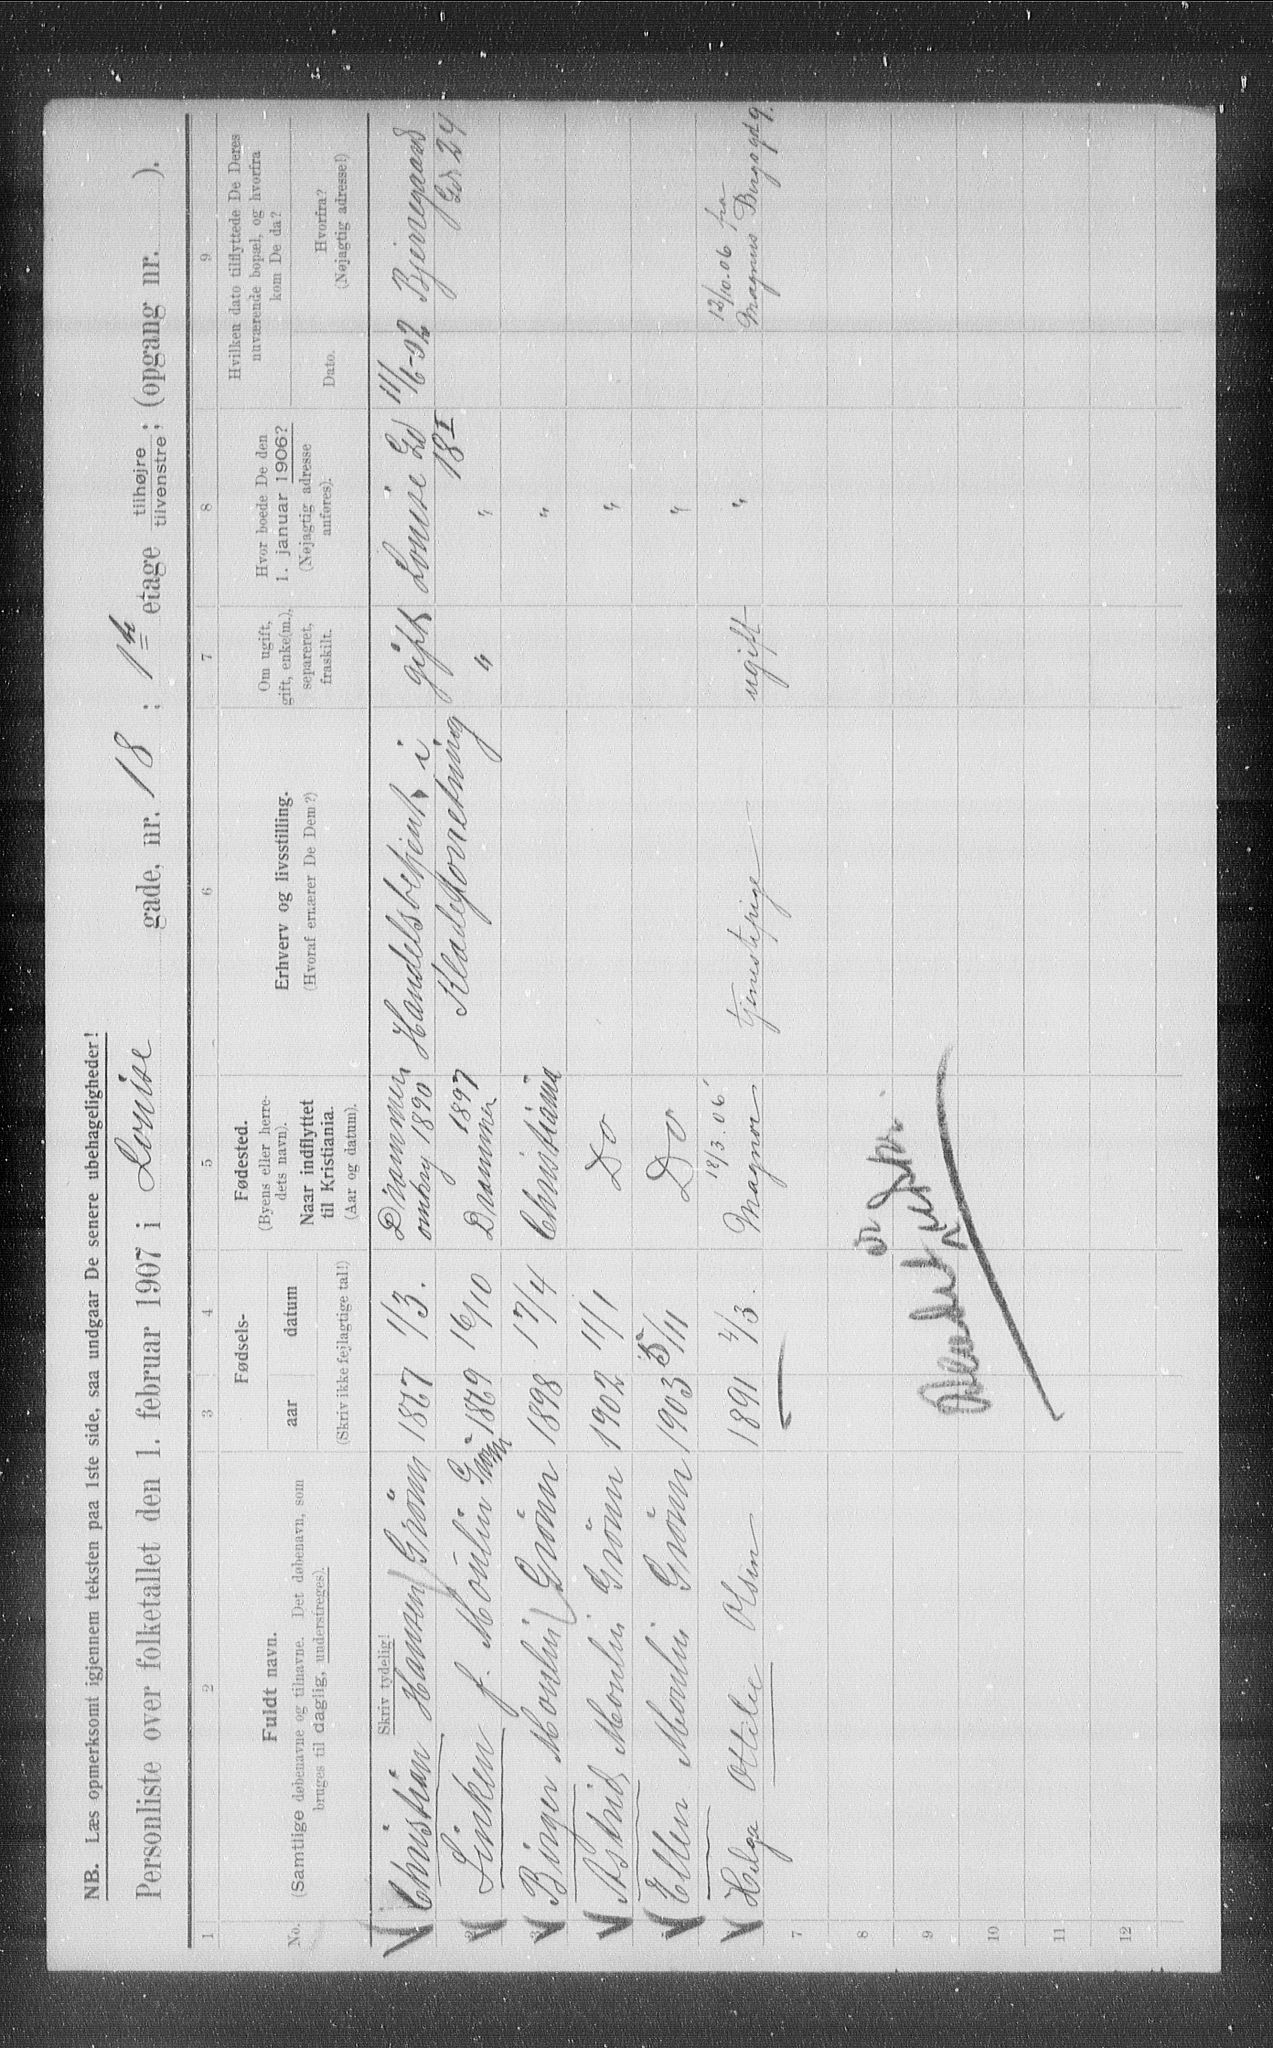 NB. Læs opmerksomt igjennem teksten paa 1ste side, saa undgaar De senere ubehageligheder!
Personliste over folketallet den 1. februar 1907 i Louise gade, nr. 18 ; 1ste etage tilhøjre / tilvenstre ; (opgang nr. ).
1 2 3 4 5 6 7 8 9
No.
Fuldt navn.
(Samtlige døbenavne og tilnavne. Det døbenavn, som
bruges til daglig, understreges).
Skriv tydelig!
Fødsels-
aar datum
(Skriv ikke fejlagtige tal!)
Fødested.
(Byens eller herre-
dets navn).
Naar indflyttet
til Kristiania.
(Aar og datum).
Erhverv og livsstilling.
(Hvoraf ernærer De Dem?)
Om ugift,
gift, enke(m.),
separeret,
fraskilt.
Hvor boede De den
1. januar 1906?
(Nøjagtig adresse
anføres).
Hvilken dato tilflyttede De Deres
nuværende bopæl, og hvorfra
kom De da?
Dato.
Hvorfra?
(Nøjagtig adresse!)
Christian Hansen Grönn 1867 1/3. Drammen omkring 1890 Handelsbetjent i gift Louise Gd 18 I 11/6-02 Bjerregaard Gd. 24
2 Linken f. Moulin Grönn 1869 16/10 1897 Drammen Kladeforretning " "
3 Birger Moulin Grönn 1898 17/4 Christiania "
Astrid Moulin Grönn 1902 11/1 Do "
Ellen Moulin Grönn 1903 5/11 Do "
Helga Ottilie Olsen 1891 4/3. 18/3.06 Magnor tjenestepige ugift " 12/10.06 fra Magnus Bergs gd 9.
7
8
9
10
11
12